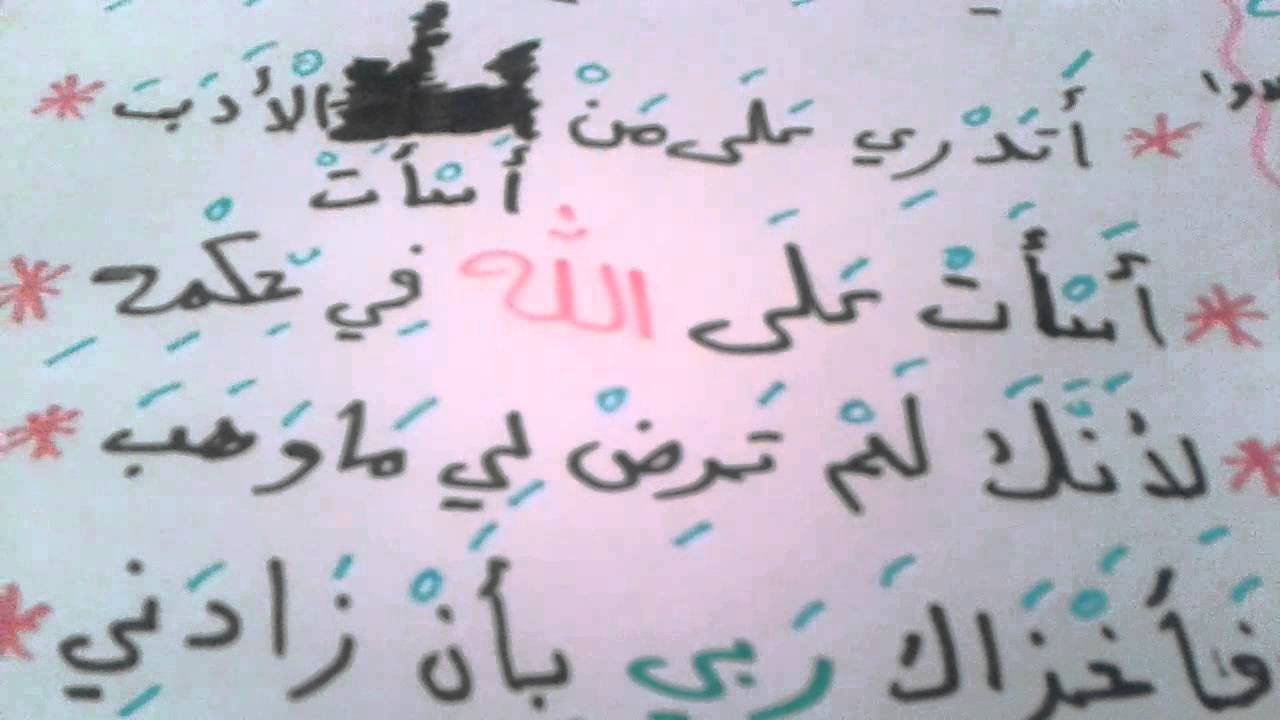 أَتَدْرِي عَلَى مَنْ الْأَدَبَ
أَسْأَتَْ
أَسْأَتَْ عَلَى اللّٰه فِي حُكْمِهِ
لأَنَّكَ لَمْ تَرِضْ لِي مَا وَهَبَ
فَأَخْزَاكَ رَبِي بِأَنْ زَادَنِي